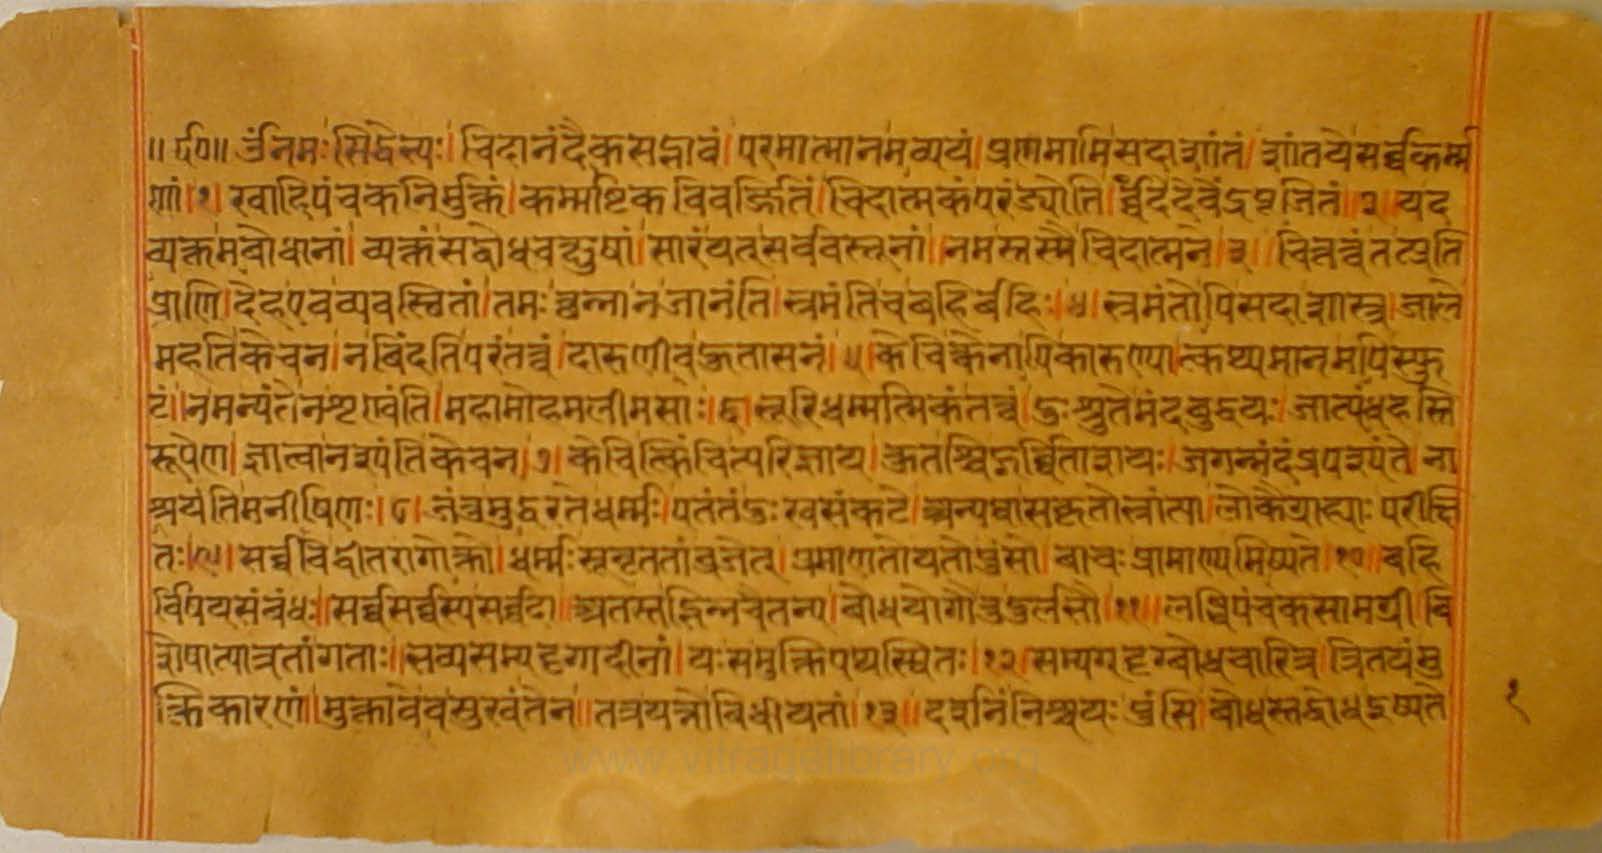 ॥ र्द०॥ उंनमःसिद्धेभ्यः। चिदानंदैकसद्भावं। परमात्मानमव्ययं। प्रणमामिसदाशांतं। शांतयेसर्व्वकर्म्म
णां।१। खादिपंचकनिर्मुक्तं। कर्म्माष्टकविवर्ज्जितं। चिदात्मकंपरंज्योति। र्व्वंदेदेवेंद्रपूजितं॥२॥यद
व्यक्तमबोधानां। व्यक्तंसद्बोधचक्षुषां। सारंयत्सर्ववस्तूनां॥नमस्तस्मैचिदात्मने॥३॥ चित्तत्वंतत्प्रति
प्राणि। देहएवव्यवस्थितां।तमःछन्नानजानंति। भ्रमंतिचबहिर्बहिः।४। भ्रमंतोपिसदाशास्त्र।जाले
महतिकेचन। नविंदतिपरंतत्वं।दारुणीवहुतासनं।५।केचित्केनापिकारुण्या।त्कथ्यमानमपिस्फु
टं॥नमन्यंतेनशृण्वंति।महामोहमलीमसाः।६।भूरिधर्म्मात्मिकंतत्वं। दुःश्रुतेमंदबुद्धयः। जात्यंधहस्ति
रूपेण। ज्ञात्वानश्यंतिकेचन।७। केचित्किंचित्परिज्ञाय। कुतश्चिद्गर्व्विताशयः।जगन्मंदंप्रपश्यंते। ना
श्रयंतिमनीषिणः।८। जंतुमुद्धरतेधर्म्मः।पतंतंदुःखसंकटे। अन्यथासकृतोभ्रांत्या।लोकैग्राह्याः परीक्षि
तः।९। सर्व्वविद्वीतरागोक्तो। धर्म्मःसूनृततांव्रजेत्। प्रमाणतोयतोपुंसो। वाचः प्रामाण्यमिष्यते॥१०॥बहि
र्विषयसंबंधः॥सर्व्वसर्व्वस्यसर्व्वदा॥अतस्तद्भिन्नचैतन्य। बोधयोगौतुदुर्लभौ॥११॥ लब्धिपंचकसामग्री। वि
शेषात्पात्रतांगताः॥सव्यसम्यदृगादीनां। यःसमुक्तिपथस्थितः।१२।सम्यग्दृग्बोधचारित्र।त्रितयंमु
क्तिकारणं॥मुक्तावेवसुखंतेन॥तत्रयत्नोविधीयतां॥१३॥ दर्शनंनिश्चयः पुंसि।बोधस्तद्बोधइष्यते
१
www.vitragelibrary.org